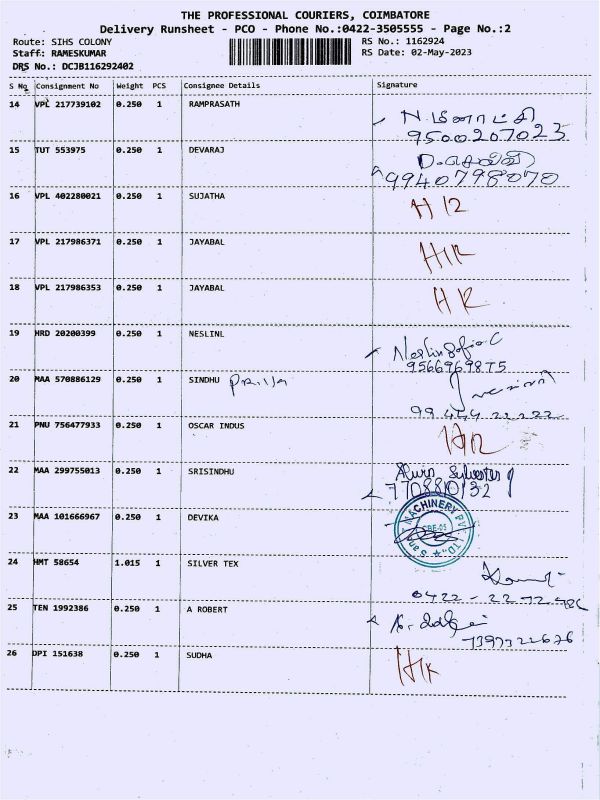 THE PROFESSIONAL COURIERS, COIMBATORE
Delivery Runsheet - PCO - Phone No.:0422-3505555 - Page No.:2
Route: SIHS COLONY RS No.: 1162924
Staff: RAMESKUMAR RS Date: 02-May-2023
DRS No.: DCJB116292402
S No Consignment No Weight PCS Consignee Details Signature
14 VPL 217739102 0.250 1 RAMPRASATH
N. மீனாட்சி
9500207023
15 TUT 553975 0.250 1 DEVARAJ
D. செல்வி
9940798070
16 VPL 402280021 0.250 1 SUJATHA
17 VPL 217986371 0.250 1 JAYABAL
18 VPL 217986353 0.250 1 JAYABAL
19 HRD 20200399 0.250 1 NESLINL
9566969875
20 MAA 570886129 0.250 1 SINDHU
21 PNU 756477933 0.250 1 OSCAR INDUS
22 MAA 299755013 0.250 1 SRISINDHU
7708810132
23 MAA 101666967 0.250 1 DEVIKA
MACHINERY PVT LTD
CBE-05
24 HMT 58654 1.015 1 SILVER TEX
25 TEN 1992386 0.250 1 A ROBERT
26 DPI 151638 0.250 1 SUDHA